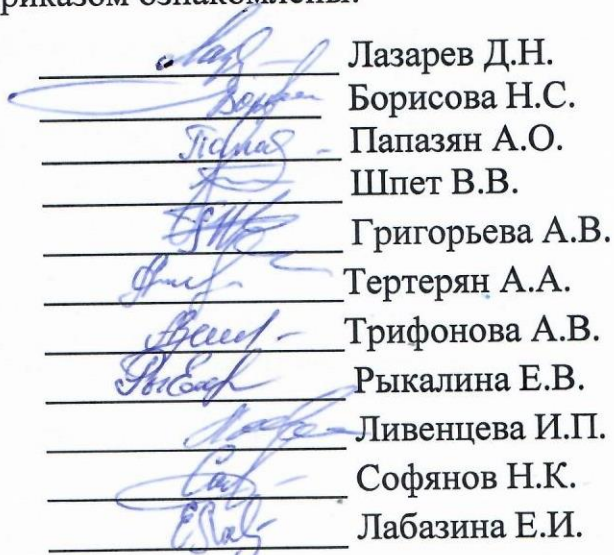 риказом ознакомлены:
Лазарев Д.Н.
Борисова Н.С.
Папазян А.О.
Шпет В.В.
Григорьева А.В.
Тертерян А.А.
Трифонова А.В.
Рыкалина Е.В.
Ливенцева И.П.
Софянов Н.К.
Лабазина Е.И.